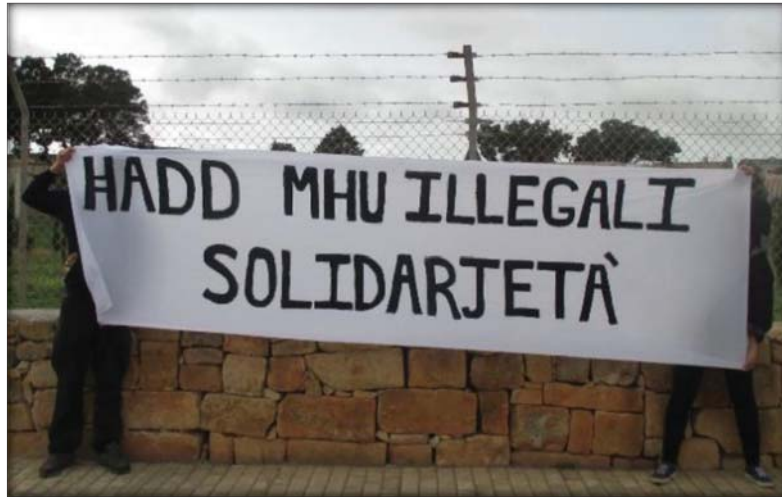 HADD MHU ILLEGALI
SOLIDARJETÀ